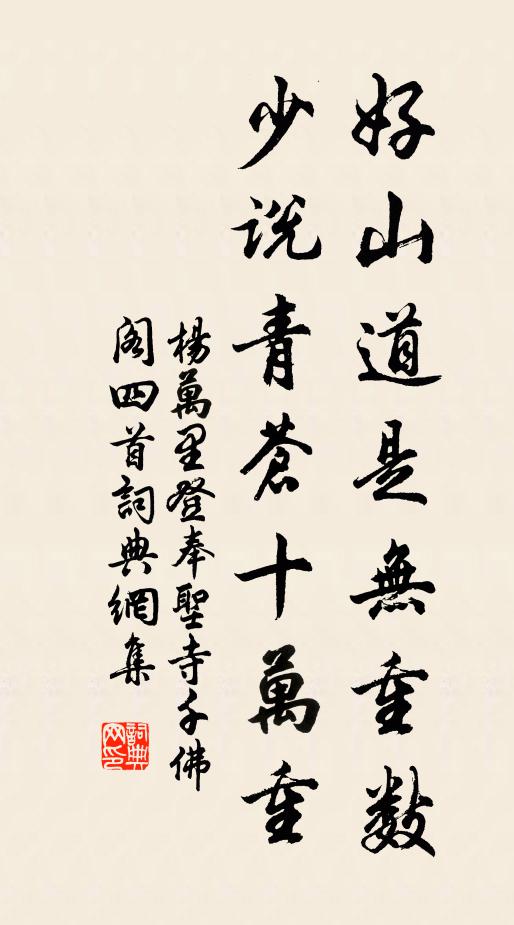 好山道是無重數
少説青蒼十萬重
楊萬里登奉聖寺千佛
閣四首詞典網集
詞典网印